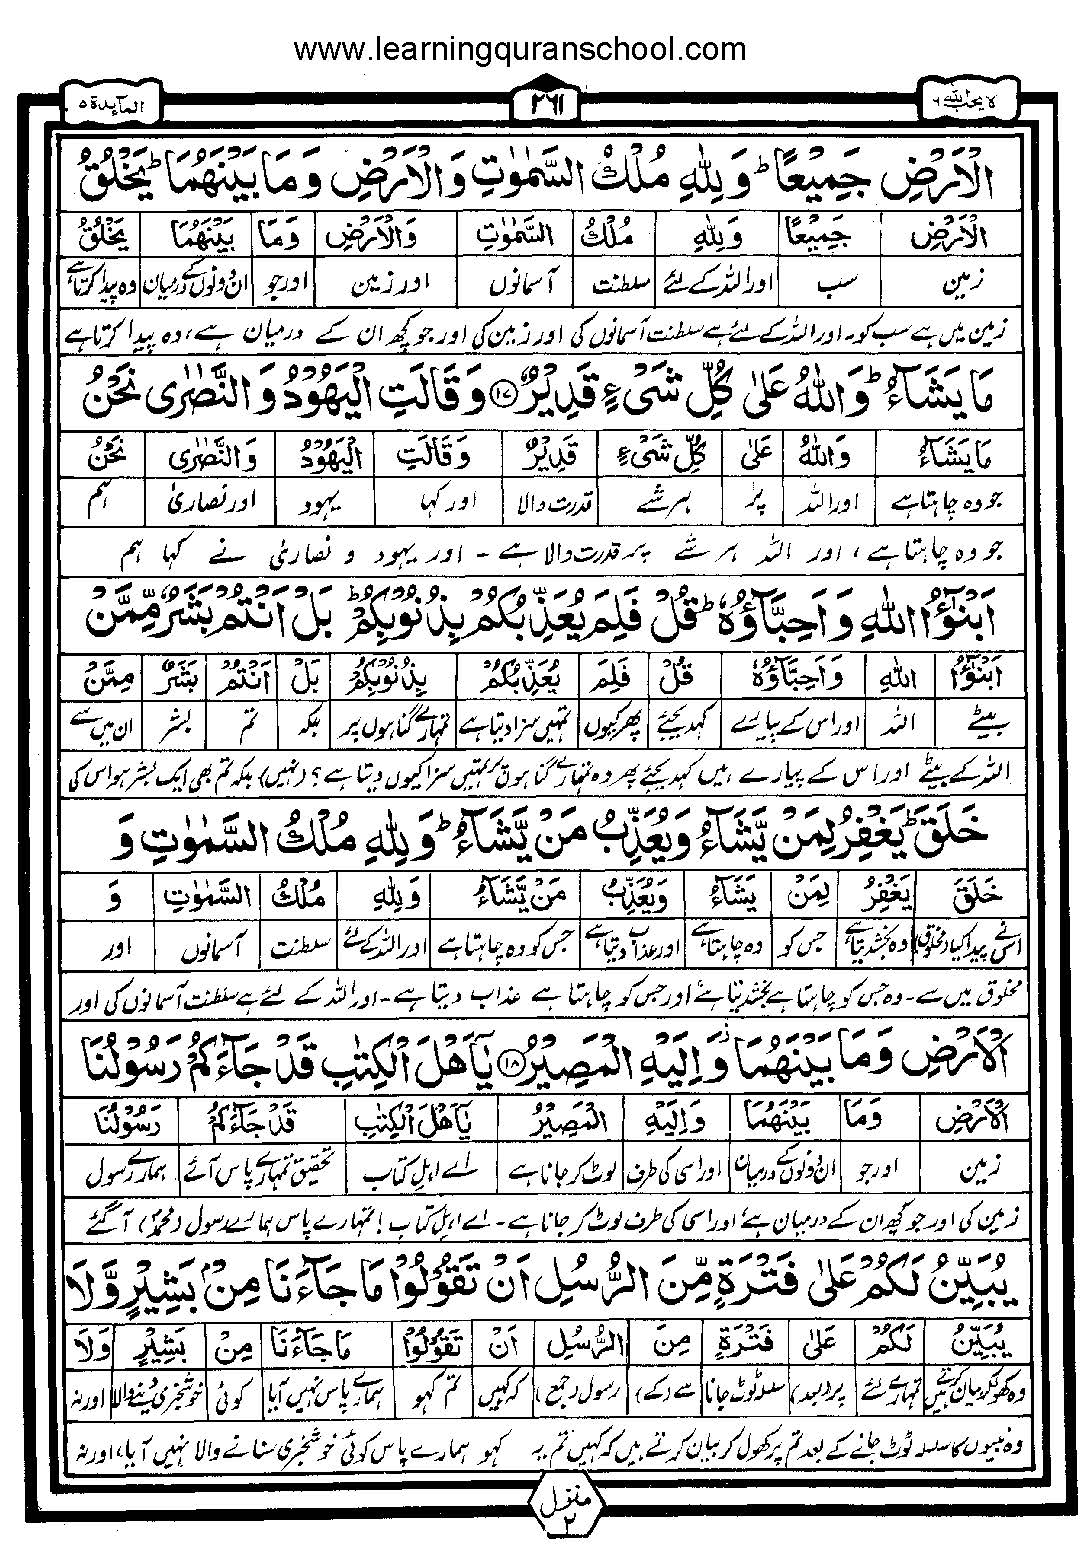 www.learningquranschool.com
لا یحب اللہ ٦
٢٦١
المآئدة ٥
الْاَرْضِ جَمِیْعًا ؕ وَ لِلّٰهِ مُلْكُ السَّمٰوٰتِ وَ الْاَرْضِ وَ مَا بَیْنَهُمَا ؕ یَخْلُقُ
الْاَرْضِ جَمِیْعًا وَ لِلّٰهِ مُلْكُ السَّمٰوٰتِ وَالْاَرْضِ وَمَا بَیْنَهُمَا یَخْلُقُ
زمین سب اور اللہ کے لئے سلطنت آسمانوں اور زمین اور جو ان دونوں کے درمیان وہ پیدا کرتا ہے
زمین میں ہے سب کو۔ اور اللہ کے لئے ہے سلطنت آسمانوں کی اور زمین کی اور جو کچھ ان کے درمیان ہے، وہ پیدا کرتا ہے
مَا یَشَآءُ ؕ وَ اللّٰهُ عَلٰی كُلِّ شَیْءٍ قَدِیْرٌ ۝١٧ وَ قَالَتِ الْیَهُوْدُ وَ النَّصٰرٰی نَحْنُ
مَا یَشَآءُ وَ اللّٰهُ عَلٰی كُلِّ شَیْءٍ قَدِیْرٌ وَ قَالَتِ الْیَهُوْدُ وَ النَّصٰرٰی نَحْنُ
جو وہ چاہتا ہے اور اللہ پر ہر شے قدرت والا اور کہا یہود اور نصاریٰ ہم
جو وہ چاہتا ہے، اور اللہ ہر شے پر قدرت والا ہے ۔ اور یہود و نصاریٰ نے کہا ہم
اَبْنٰٓؤُا اللّٰهِ وَ اَحِبَّآؤُهٗ ؕ قُلْ فَلِمَ یُعَذِّبُكُمْ بِذُنُوْبِكُمْ ؕ بَلْ اَنْتُمْ بَشَرٌ مِّمَّنْ
اَبْنٰٓؤُا اللّٰهِ وَ اَحِبَّآؤُهٗ قُلْ فَلِمَ یُعَذِّبُكُمْ بِذُنُوْبِكُمْ بَلْ اَنْتُمْ بَشَرٌ مِّمَّنْ
بیٹے اللہ اور اس کے پیارے کہدیجئے پھر کیوں تمہیں سزا دیتا ہے تمہارے گناہوں پر بلکہ تم بشر ان میں سے
اللہ کے بیٹے اور اس کے پیارے ہیں کہدیجئے پھر وہ تمہارے گناہوں پر تمہیں سزا کیوں دیتا ہے؟ (نہیں) بلکہ تم بھی ایک بشر ہو اس کی
خَلَقَ ؕ یَغْفِرُ لِمَنْ یَّشَآءُ وَ یُعَذِّبُ مَنْ یَّشَآءُ ؕ وَ لِلّٰهِ مُلْكُ السَّمٰوٰتِ وَ
خَلَقَ یَغْفِرُ لِمَنْ یَشَآءُ وَیُعَذِّبُ مَنْ یَّشَآءُ وَ لِلّٰهِ مُلْكُ السَّمٰوٰتِ وَ
اسنے پیدا کیا (مخلوق) وہ بخشدیتا ہے جس کو وہ چاہتا ہے اور عذاب دیتا ہے جس کو وہ چاہتا ہے اور اللہ کے لئے سلطنت آسمانوں اور
مخلوق میں سے ۔ وہ جس کو چاہتا ہے بخشدیتا ہے اور جس کو چاہتا ہے عذاب دیتا ہے ۔ اور اللہ کے لئے ہے سلطنت آسمانوں کی اور
الْاَرْضِ وَ مَا بَیْنَهُمَا ؗ وَ اِلَیْهِ الْمَصِیْرُ ۝١٨ یٰۤاَهْلَ الْكِتٰبِ قَدْ جَآءَكُمْ رَسُوْلُنَا
الْاَرْضِ وَمَا بَیْنَهُمَا وَ اِلَیْهِ الْمَصِیْرُ یٰۤاَهْلَ الْكِتٰبِ قَدْ جَآءَكُمْ رَسُوْلُنَا
زمین اور جو ان دونوں کے درمیان اور اسی کی طرف لوٹ کر جانا ہے اے اہل کتاب تحقیق تمہارے پاس آئے ہمارے رسول
زمین کی اور جو کچھ ان کے درمیان ہے، اور اسی کی طرف لوٹ کر جانا ہے ۔ اے اہل کتاب! تمہارے پاس ہمارے رسول (محمدؐ) آگئے
یُبَیِّنُ لَكُمْ عَلٰی فَتْرَةٍ مِّنَ الرُّسُلِ اَنْ تَقُوْلُوْا مَا جَآءَنَا مِنْۢ بَشِیْرٍ وَّ لَا
یُبَیِّنُ لَكُمْ عَلٰی فَتْرَةٍ مِنَ الرُّسُلِ اَنْ تَقُوْلُوْا مَا جَآءَنَا مِنْ بَشِیْرٍ وَّلَا
وہ کھول کر بیان کرتے ہیں تمہارے لئے پر (بعد) سلسلہ ٹوٹ جانا سے (کے) رسول (جمع) کہ کہیں تم کہو ہمارے پاس نہیں آیا کوئی خوشخبری دینے والا اور نہ
وہ نبیوں کا سلسلہ ٹوٹ جانے کے بعد تم پر کھول کر بیان کرتے ہیں کہ کہیں تم یہ کہو ہمارے پاس کوئی خوشخبری سنانے والا نہیں آیا، اور نہ
منزل ٢